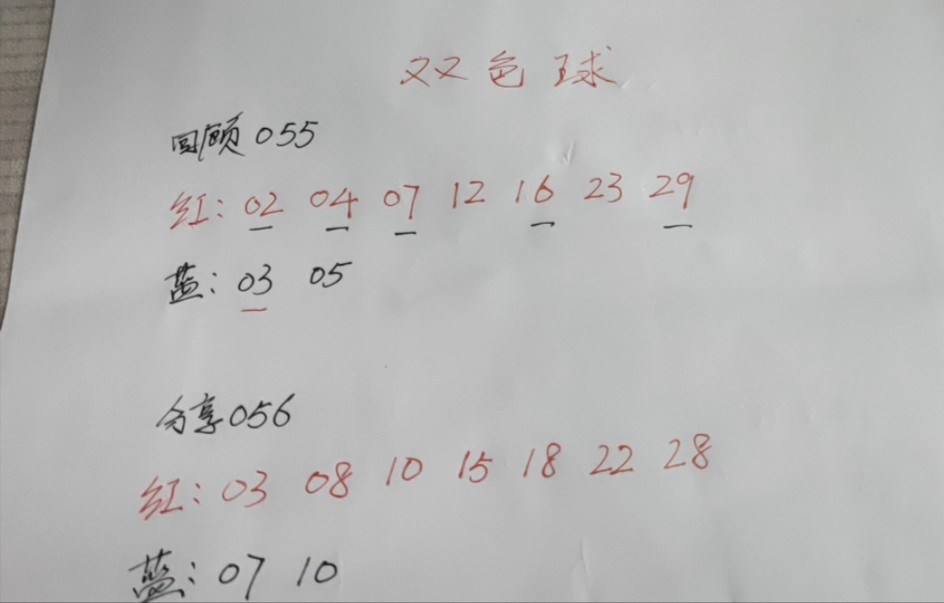 双色球
回顾055
红：02 04 07 12 16 23 29
蓝：03 05
分享056
红：03 08 10 15 18 22 28
蓝：07 10